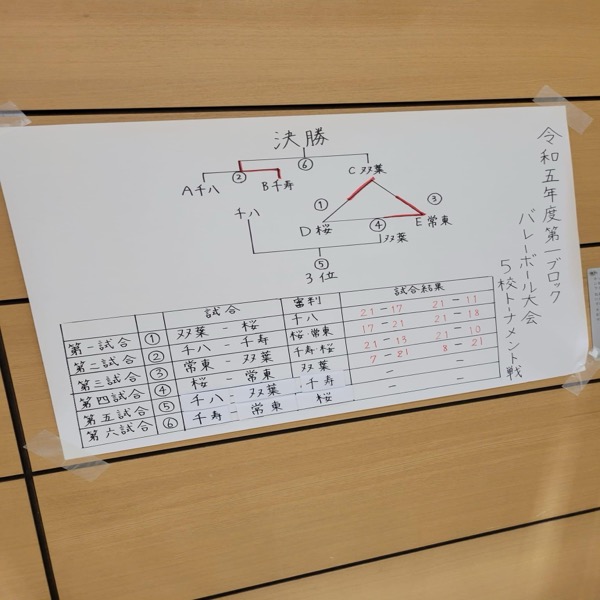 令和五年度第一ブロック
バレーボール大会
5校トーナメント戦
決勝
⑥
② C 双葉
A 千八 B 千寿
① ③
千八
D 桜 ④ E 常東
双葉
⑤
3位
試合 審判 試合結果
第一試合 ① 双葉 - 桜 千八 21-17 21-11
第二試合 ② 千八 - 千寿 桜・常東 17-21 21-18
第三試合 ③ 常東 - 双葉 千寿・桜 21-13 21-10
第四試合 ④ 桜 - 常東 双葉 7-21 8-21
第五試合 ⑤ 千八 - 双葉 千寿 - -
第六試合 ⑥ 千寿 - 常東 桜 - -